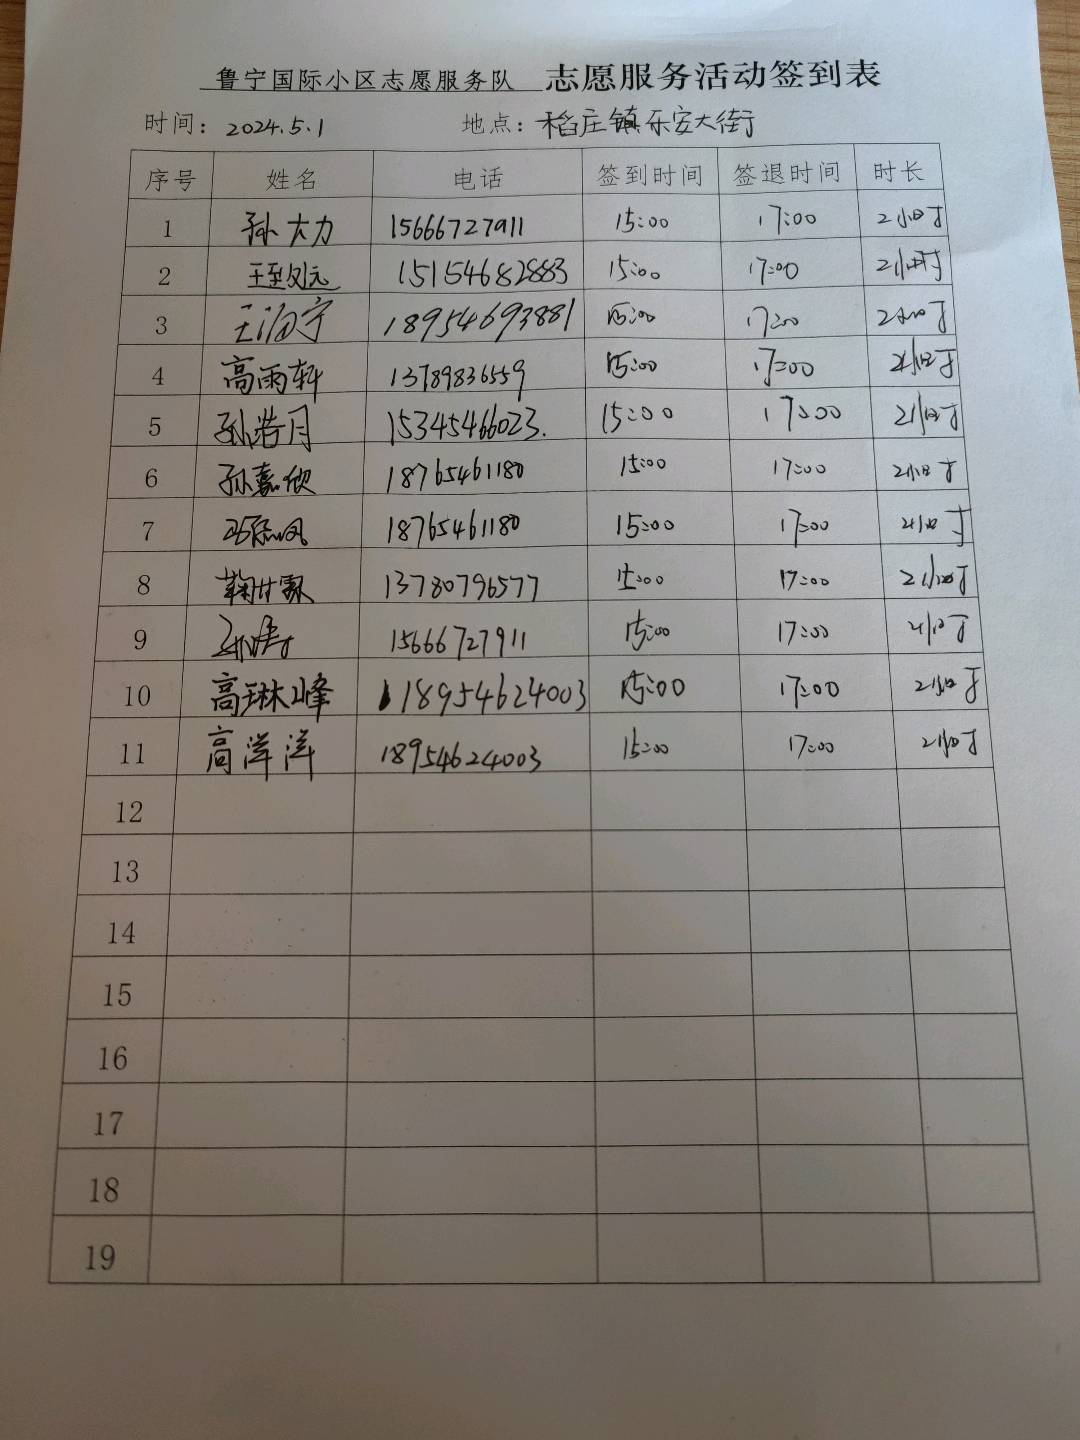 鲁宁国际小区志愿服务队 志愿服务活动签到表
时间：2024.5.1 地点：稻庄镇乐安大街
序号 姓名 电话 签到时间 签退时间 时长
1 孙大力 15666727911 15:00 17:00 2小时
2 15154682883 15:00 17:00 2小时
3 18954693881 15:00 17:00 2小时
4 高雨轩 13789836559 15:00 17:00 2小时
5 孙浩月 15345466023. 15:00 17:00 2小时
6 孙嘉欣 18765461180 15:00 17:00 2小时
7 18765461180 15:00 17:00 2小时
8 13780796577 15:00 17:00 2小时
9 15666727911 15:00 17:00 2小时
10 高琳峰 18954624003 15:00 17:00 2小时
11 高洋洋 18954624003 15:00 17:00 2小时
12
13
14
15
16
17
18
19